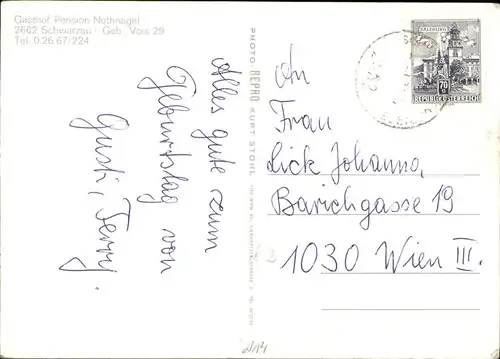 Gasthof Pension Nothnagel
2662 Schwarzau · Geb. Vois 29
Tel. 0 26 67/224
Alles gute zum
Geburtstag von
Gusti, Ferry.
PHOTO REPRO KURT STOHL
SALZBURG
70
REPUBLIK ÖSTERREICH
An
Frau
Lick Johanna,
Barichgasse 19
1030 Wien III.